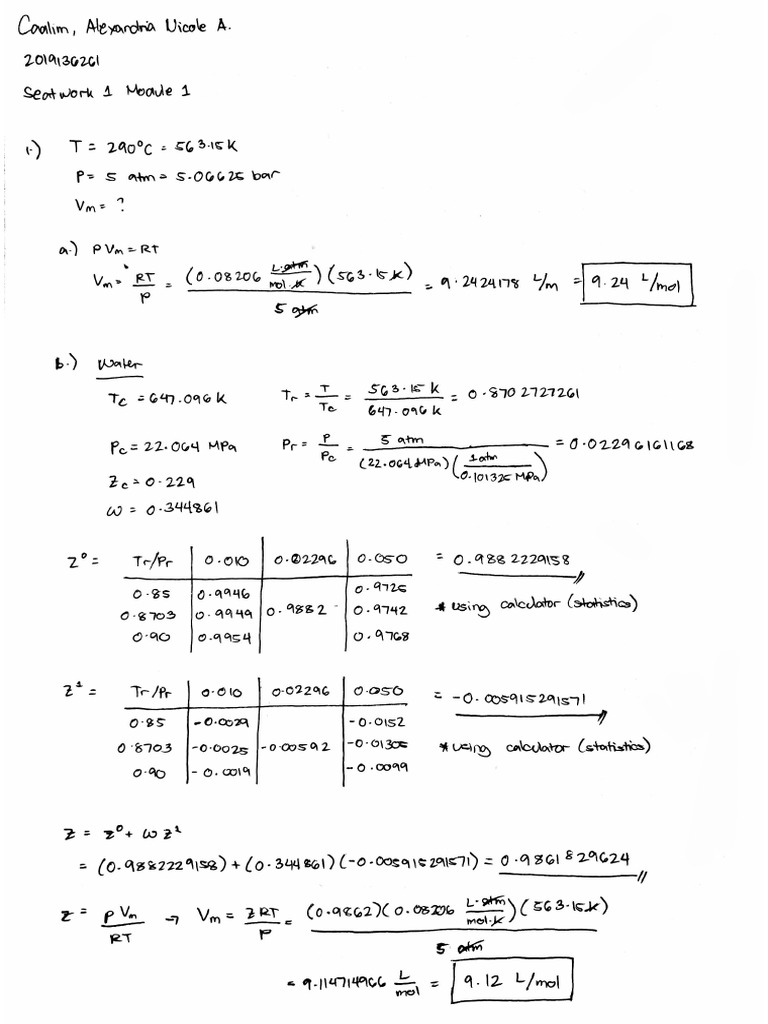 Caalim, Alexandria Nicole A.
2019136261
Seatwork 1 Module 1
1.) T = 290°C = 563.15 K
P = 5 atm = 5.06625 bar
Vm = ?
a.) PVm = RT
Vm = RT/P = (0.08206 L·atm/mol·K)(563.15 K) / 5 atm = 9.2424178 L/m = 9.24 L/mol
b.) Water
Tc = 647.096 K Tr = T/Tc = 563.15 K / 647.096 K = 0.8702727261
Pc = 22.064 MPa Pr = P/Pc = 5 atm / (22.064 MPa)(1 atm / 0.101325 MPa) = 0.02296161168
Zc = 0.229
ω = 0.344861
Z⁰ = Tr/Pr 0.010 0.02296 0.050 = 0.9882229158
0.85 0.9946 0.9725
0.8703 0.9949 0.9882 0.9742 * using calculator (statistics)
0.90 0.9954 0.9768
Z¹ = Tr/Pr 0.010 0.02296 0.050 = -0.005915291571
0.85 -0.0029 -0.0152
0.8703 -0.0025 -0.00592 -0.01305 * using calculator (statistics)
0.90 -0.0019 -0.0099
Z = Z⁰ + ωZ¹
= (0.9882229158) + (0.344861)(-0.005915291571) = 0.9861829624
Z = PVm/RT → Vm = ZRT/P = (0.9862)(0.08206 L·atm/mol·K)(563.15 K) / 5 atm
= 9.114714966 L/mol = 9.12 L/mol